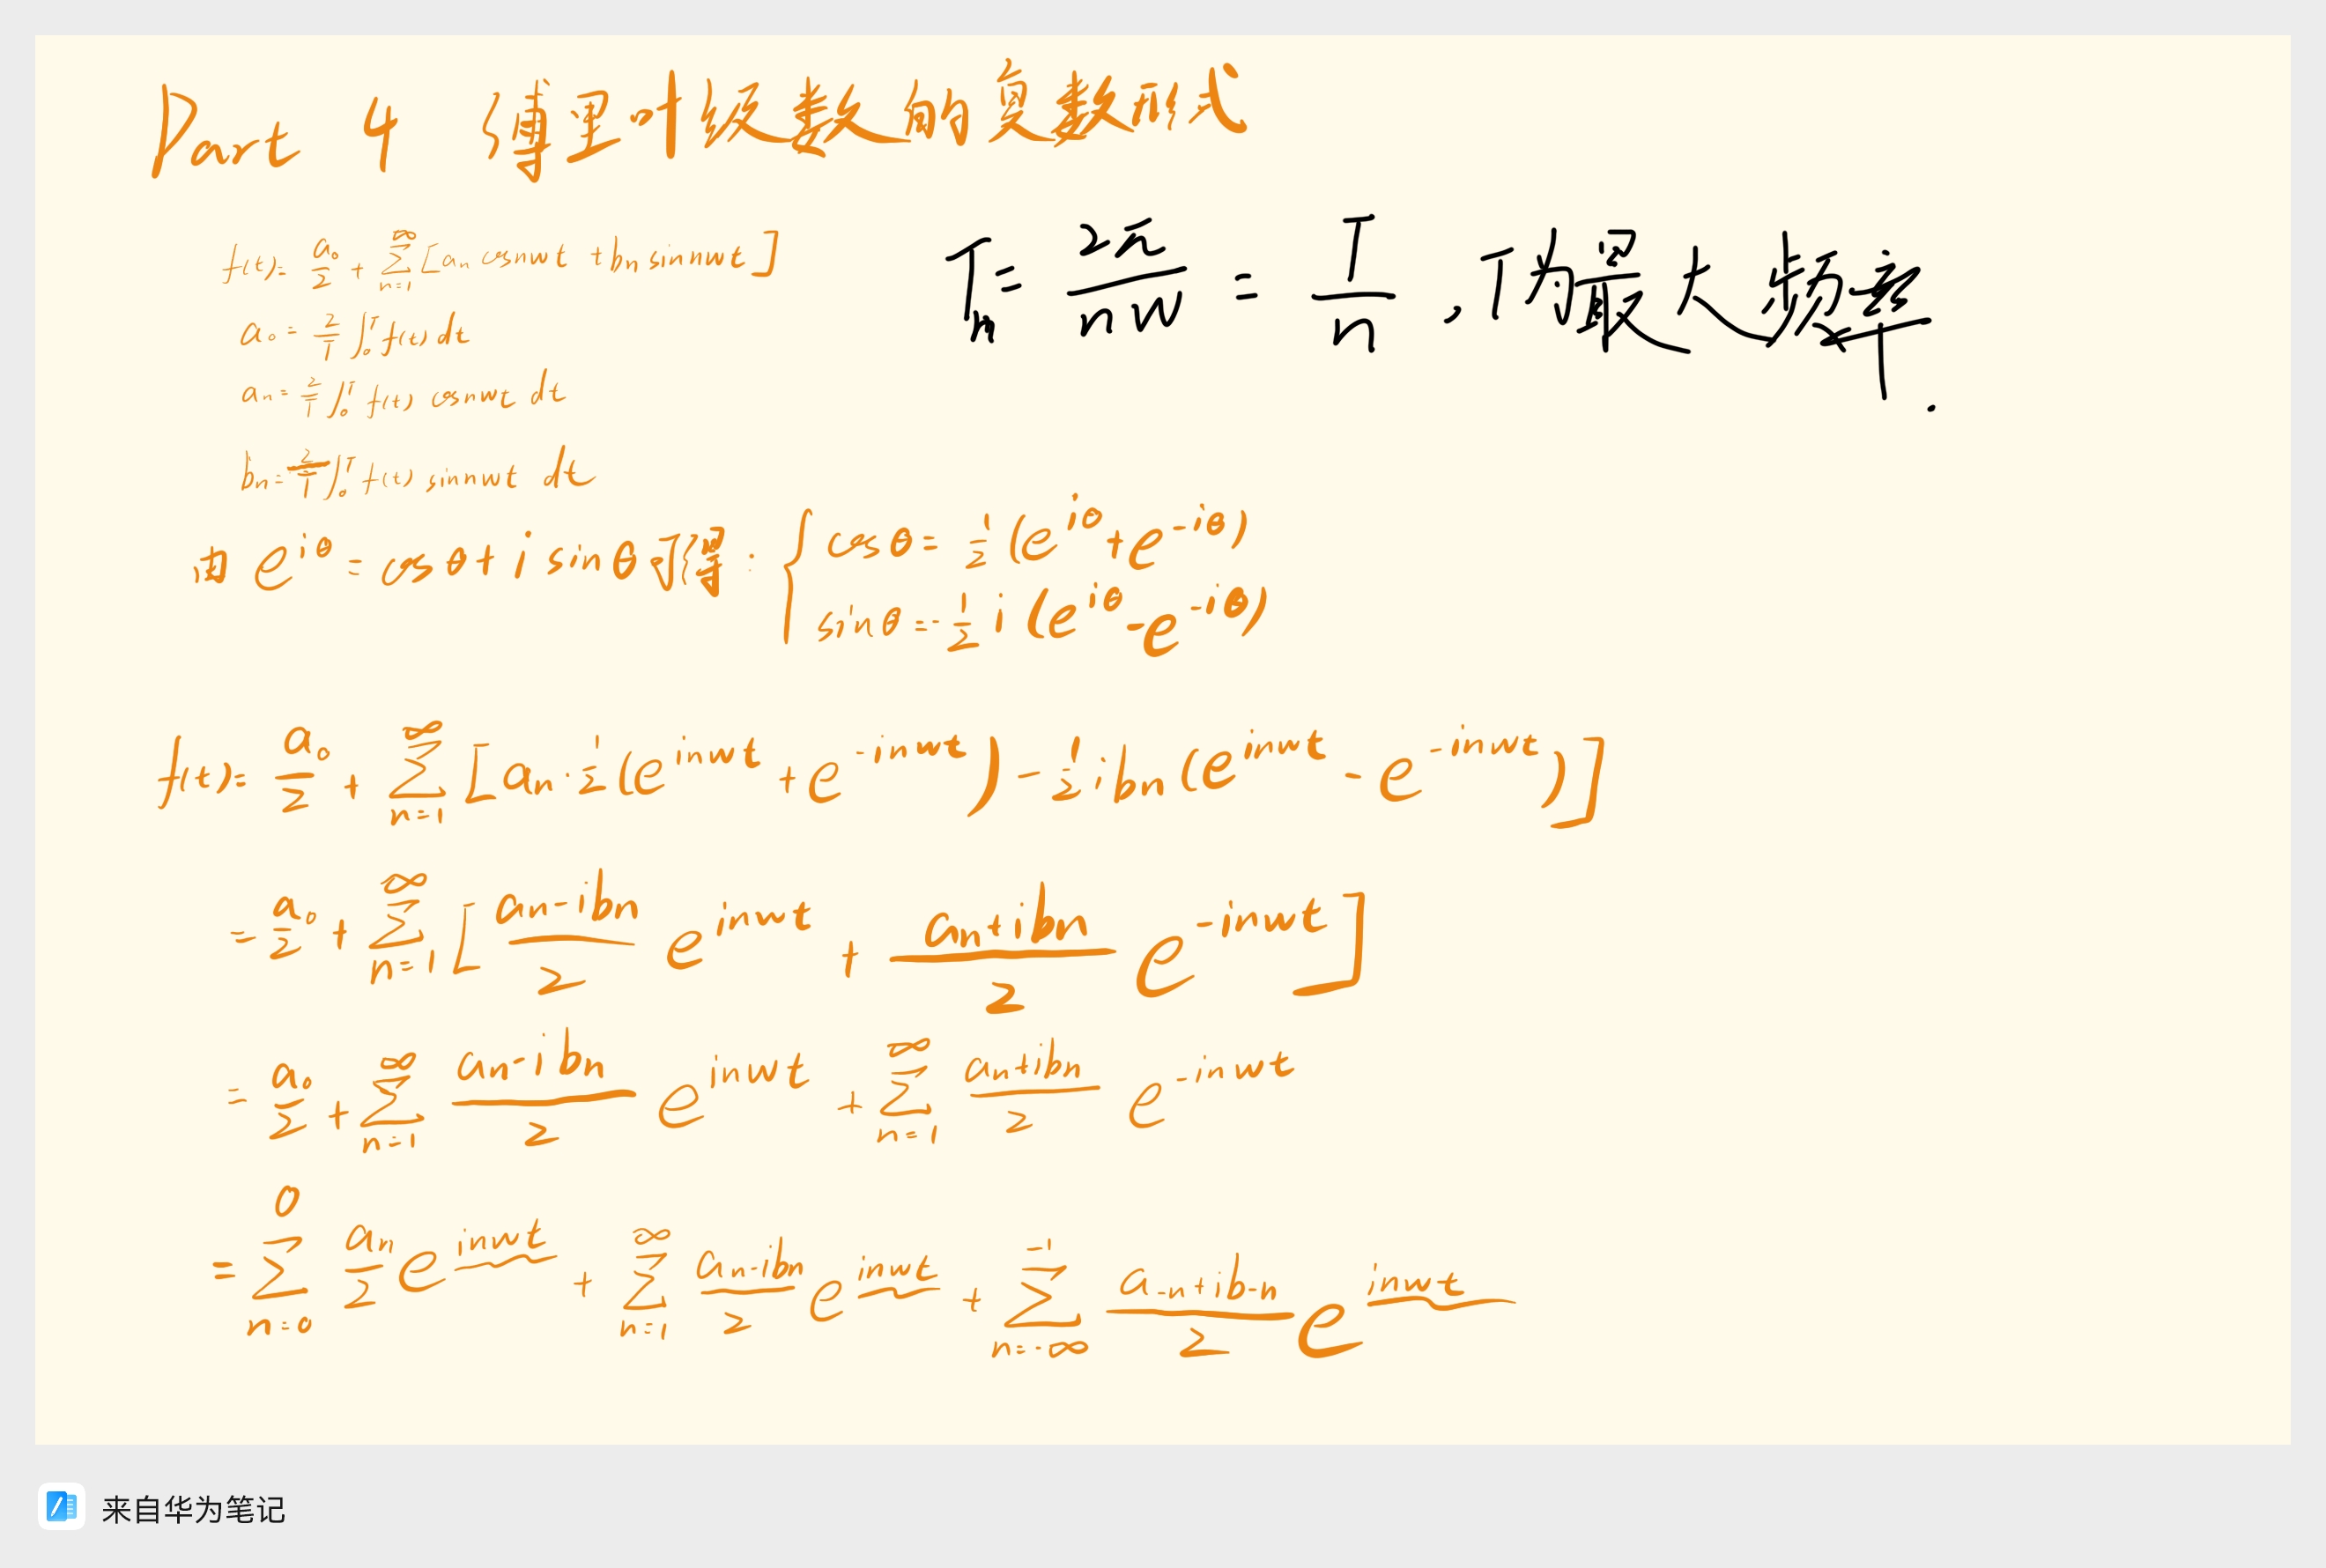 Part 4 傅里叶级数的复数形式
f(t)= a₀/2 + ∑_{n=1}^{∞} [aₙ cosnwt + bₙ sinnwt]
Tₙ = 2π/nw = T/n , T为最大频率.
a₀ = 2/T ∫₀ᵀ f(t) dt
aₙ = 2/T ∫₀ᵀ f(t) cosnwt dt
bₙ = 2/T ∫₀ᵀ f(t) sinnwt dt
由 e^{iθ} = cosθ + i sinθ 可得: { cosθ = 1/2 (e^{iθ} + e^{-iθ})
sinθ = -1/2 i (e^{iθ} - e^{-iθ})
f(t)= a₀/2 + ∑_{n=1}^{∞} [aₙ · 1/2 (e^{inwt} + e^{-inwt}) - 1/2 i bₙ (e^{inwt} - e^{-inwt})]
= a₀/2 + ∑_{n=1}^{∞} [(aₙ - ibₙ)/2 e^{inwt} + (aₙ + ibₙ)/2 e^{-inwt}]
= a₀/2 + ∑_{n=1}^{∞} (aₙ - ibₙ)/2 e^{inwt} + ∑_{n=1}^{∞} (aₙ + ibₙ)/2 e^{-inwt}
= ∑_{n=0}^{0} aₙ/2 e^{inwt} + ∑_{n=1}^{∞} (aₙ - ibₙ)/2 e^{inwt} + ∑_{n=-∞}^{-1} (a₋ₙ + ib₋ₙ)/2 e^{inwt}
来自华为笔记